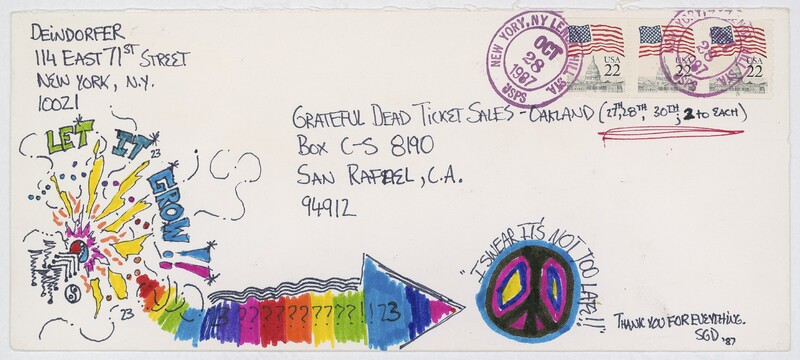 DEINDORFER
114 EAST 71ST STREET
NEW YORK, N.Y.
10021
NEW YORY, NY LENOX HILL STA
OCT
28
1987
USPS
28
1987
USA
22
USA
22
USA
22
GRATEFUL DEAD TICKET SALES - OAKLAND (27TH, 28TH, 30TH; 2 TO EACH)
BOX C-S 8190
SAN RAFAEL, C.A.
94912
LET IT GROW!!
23
23
23
???????!!23
"I SWEAR IT'S NOT TOO LATE!!"
THANK YOU FOR EVERYTHING.
SGD '87